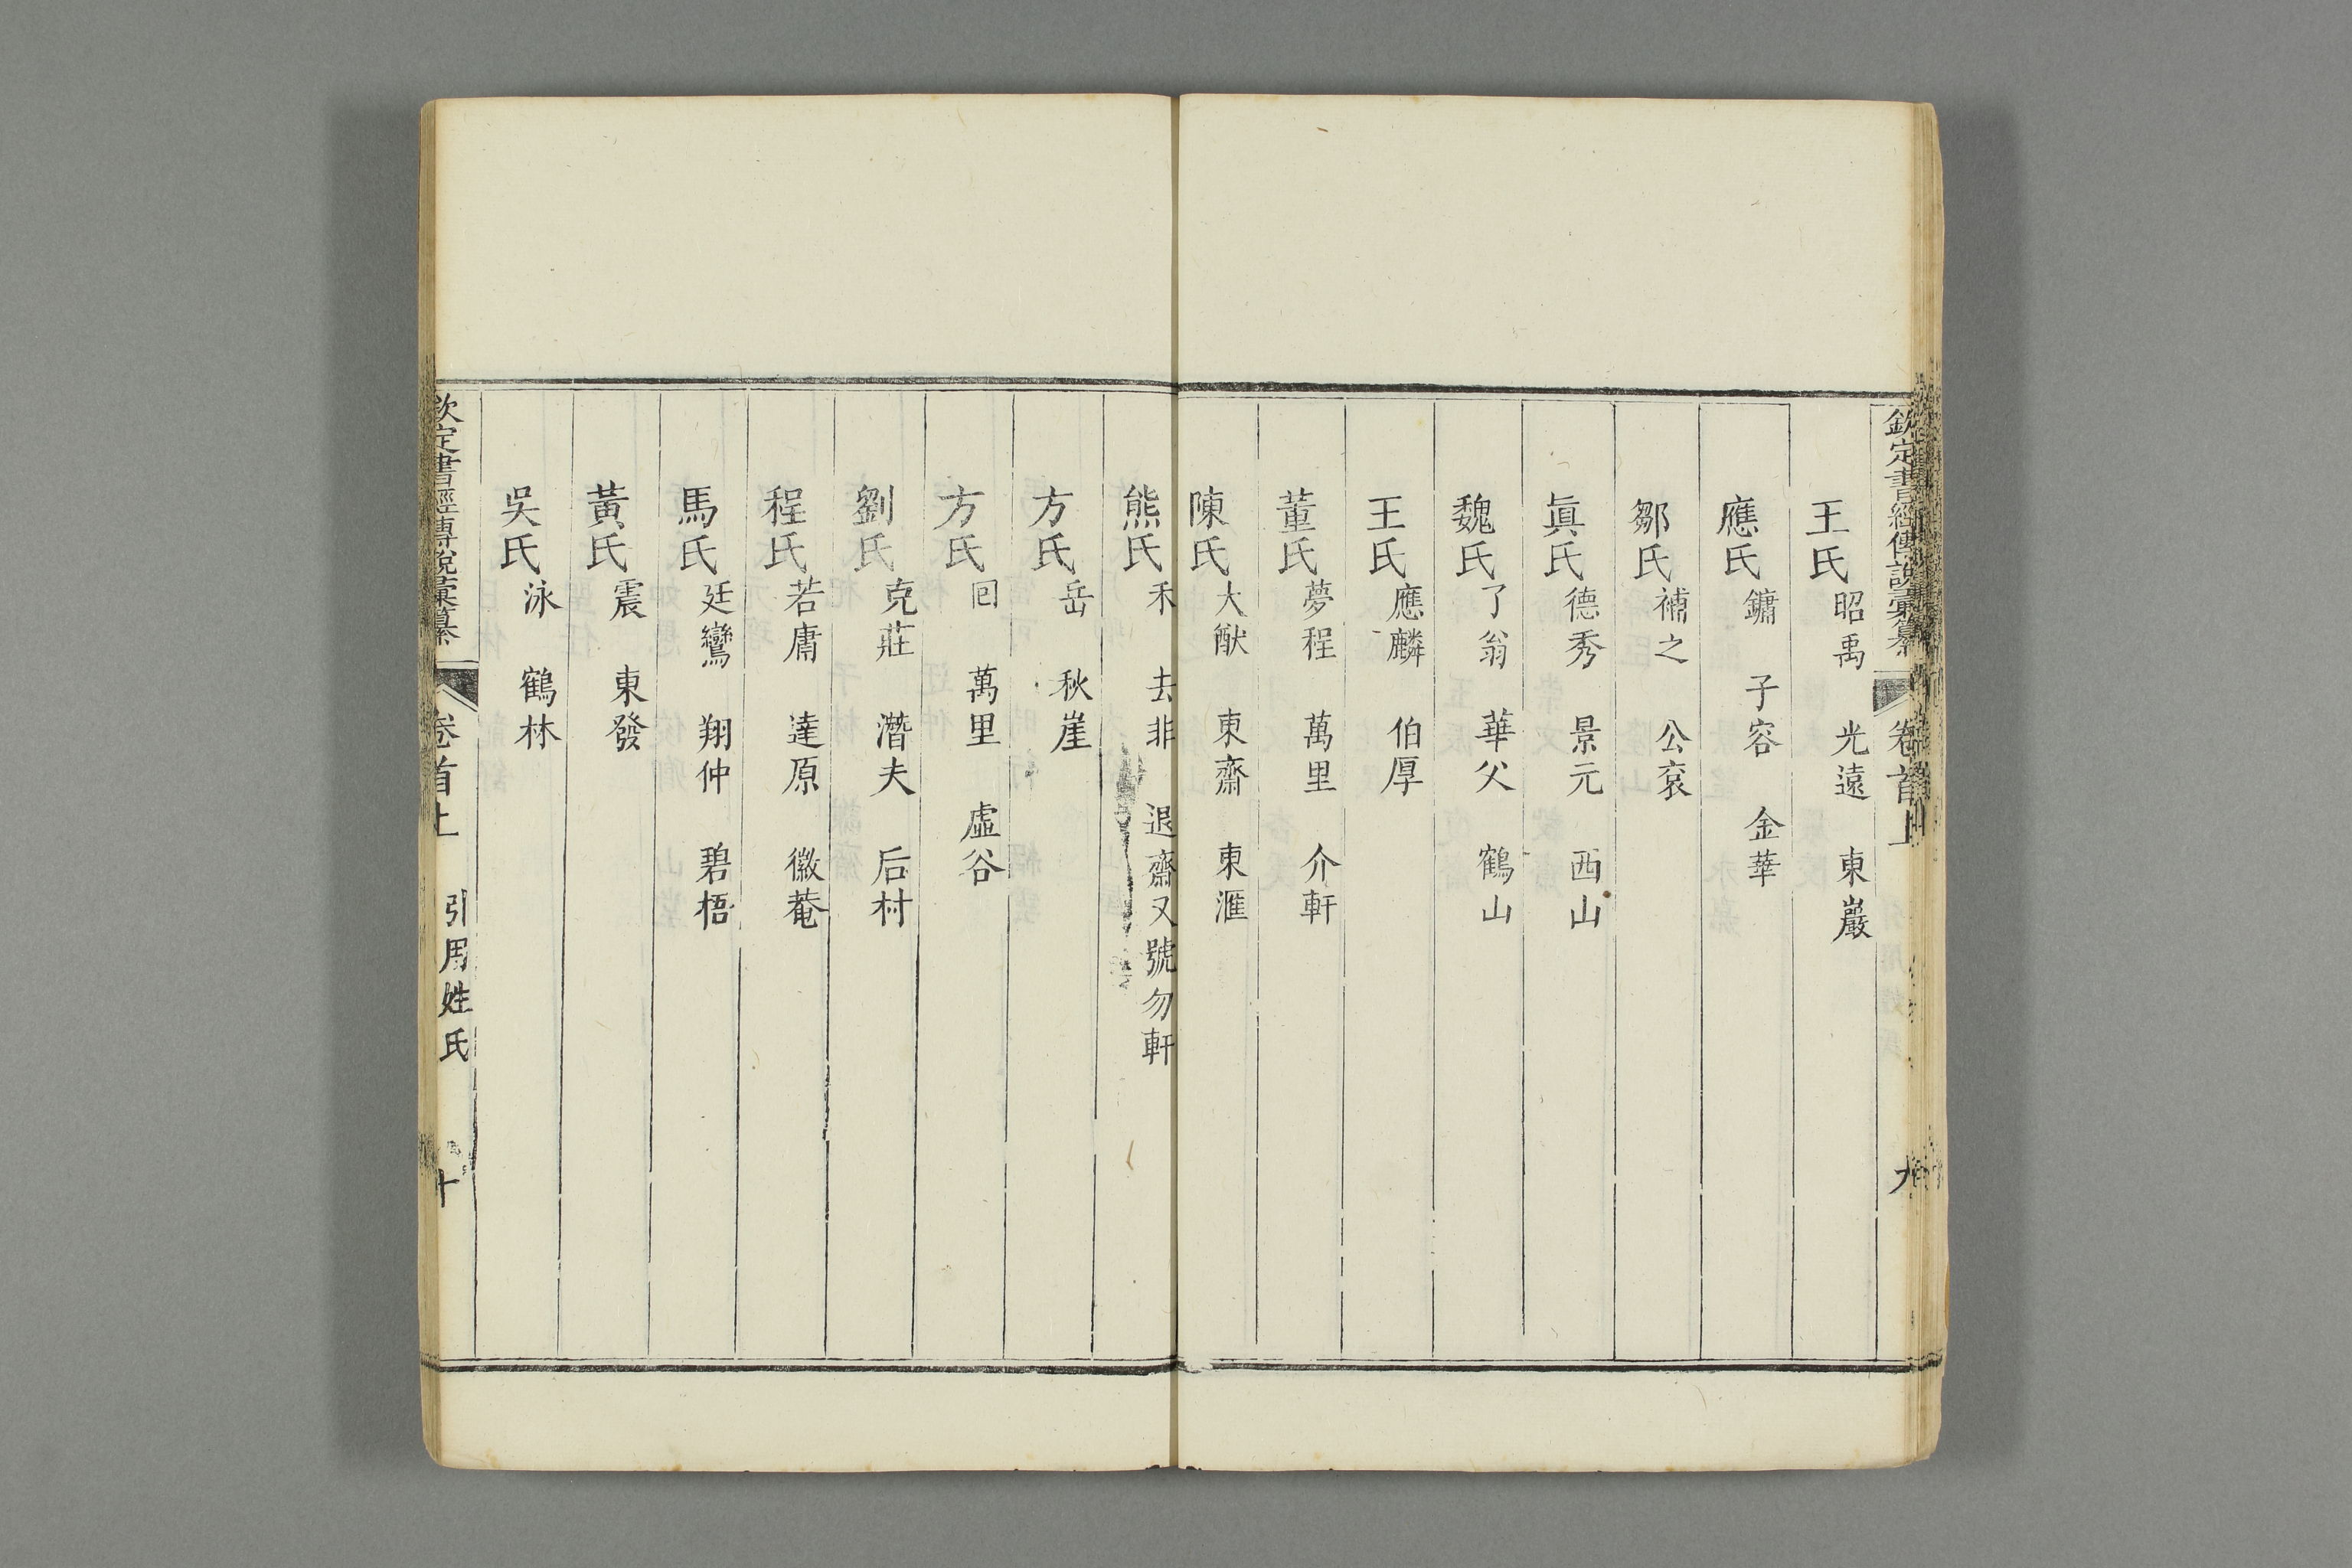 欽定書經傳說彙纂 卷首上 九
王氏昭禹 光遠 東巖
應氏鏞 子容 金華
鄒氏補之 公衮
眞氏德秀 景元 西山
魏氏了翁 華父 鶴山
王氏應麟 伯厚
董氏夢程 萬里 介軒
陳氏大猷 東齋 東滙
熊氏禾 去非 退齋又號勿軒
方氏岳 秋崖
方氏囘 萬里 虛谷
劉氏克莊 潛夫 后村
程氏若庸 達原 徽菴
馬氏廷鸞 翔仲 碧梧
黃氏震 東發
吳氏泳 鶴林
欽定書經傳說彙纂 卷首上 引用姓氏 十